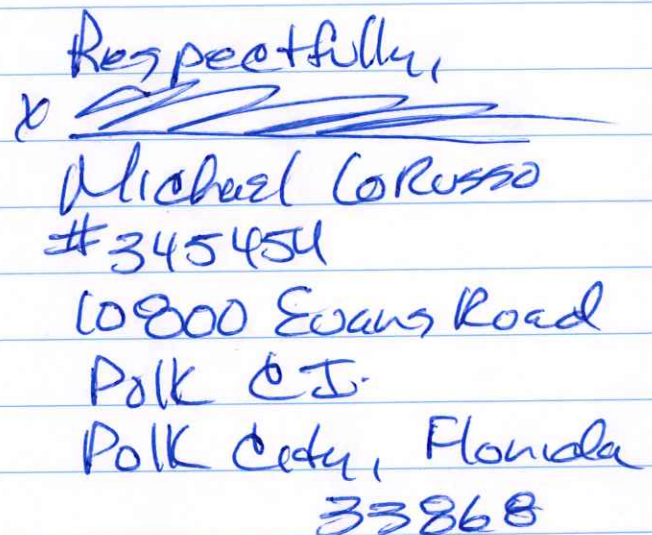 Respectfully,
X
Michael LoRusso
#345454
10800 Evans Road
Polk C.I.
Polk City, Florida
33868